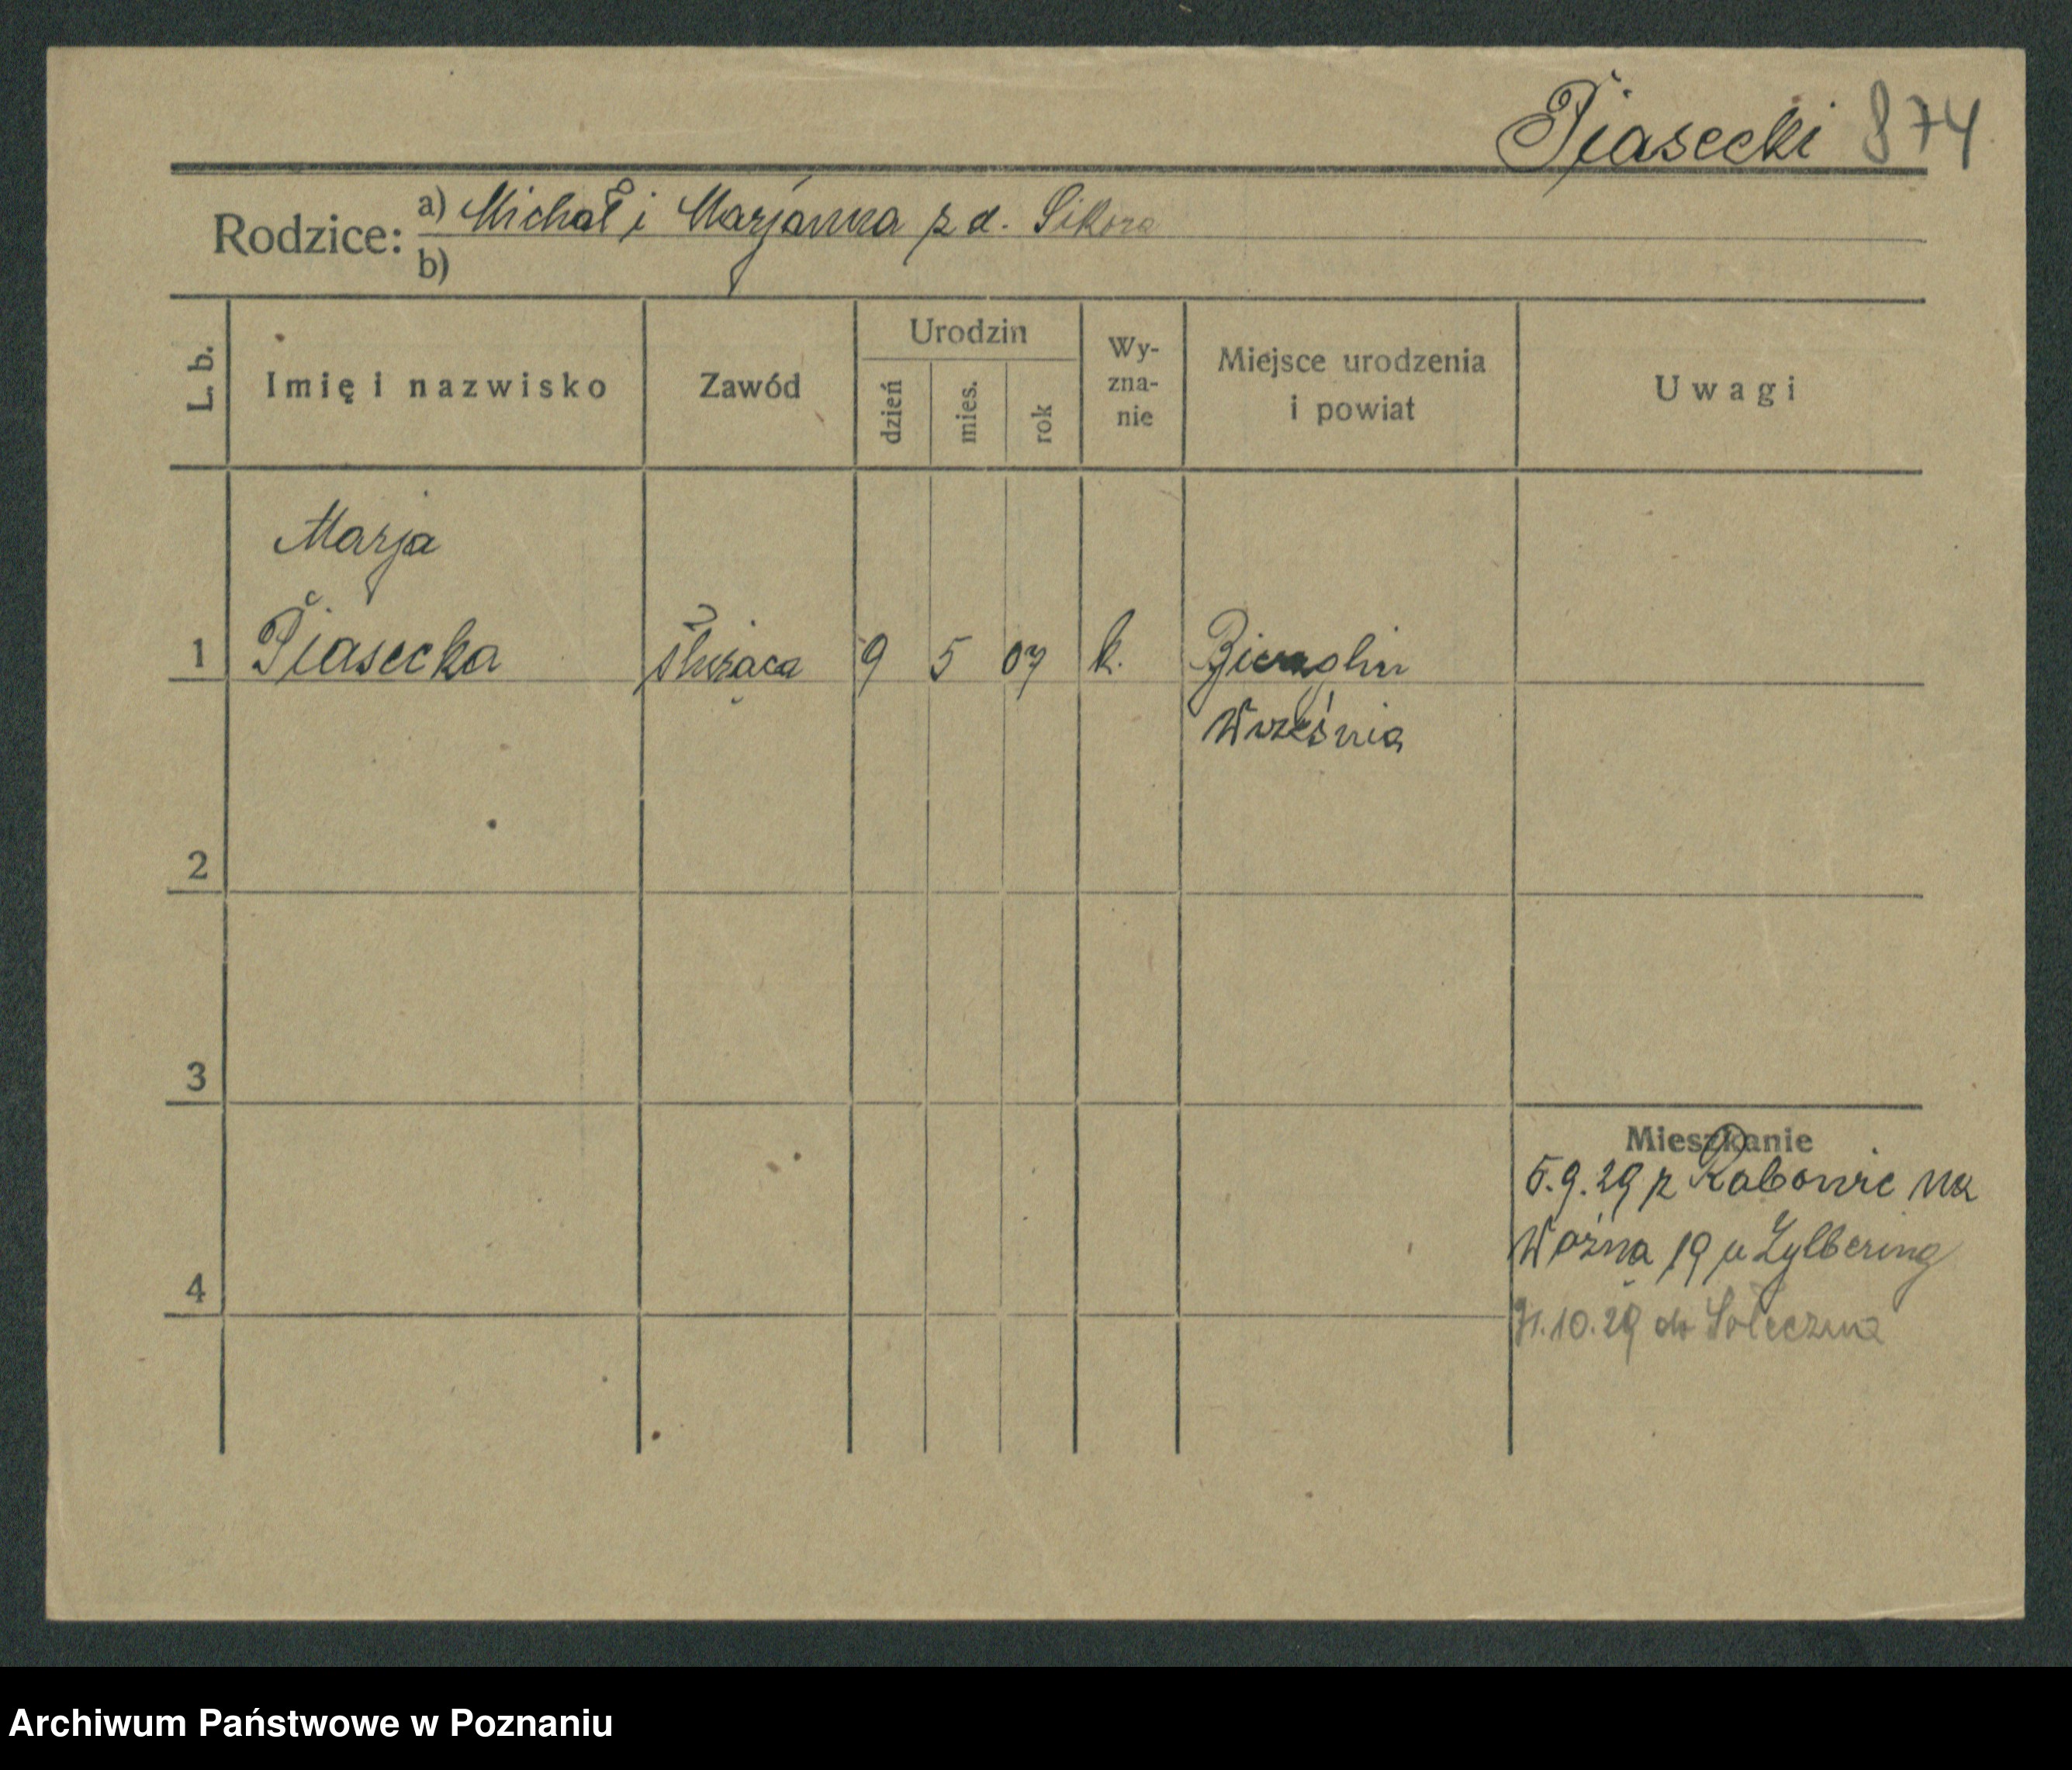 Piasecki 874
Rodzice: a) Michał i Marjanna z d. Sikora
b)
L. b.
Imię i nazwisko
Zawód
Urodzin
dzień
mies.
rok
Wy-
zna-
nie
Miejsce urodzenia
i powiat
Uwagi
Marja
1 Piasecka służąca 9 5 07 k. Bierzglin
Września
2
3
Mieszkanie
5.9.29 z Rabowic na
Woźna 19 u Zylbering
4
31.10.29 do
Archiwum Państwowe w Poznaniu